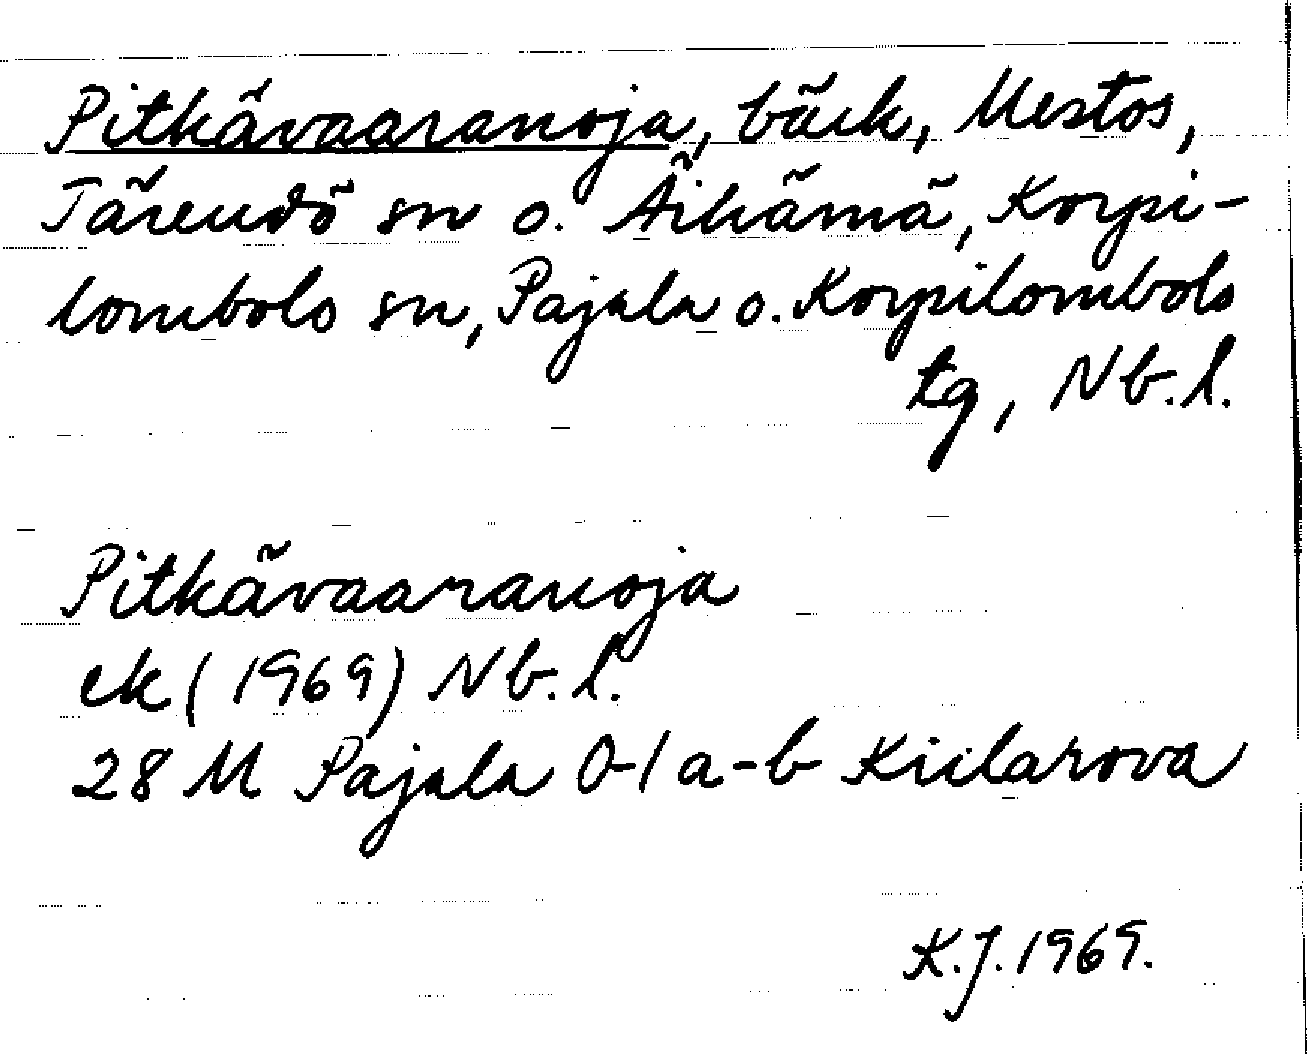 Pitkävaaranoja, bäck, Mestos,
Tärendö sn o. Äihämä, Korpi-
lombolo sn, Pajala o. Korpilombolo
tg, Nb.l.
Pitkävaaranoja
ek (1969) Nb.l.
28 M Pajala 0-1 a-b Kiilarova
K.J. 1969.